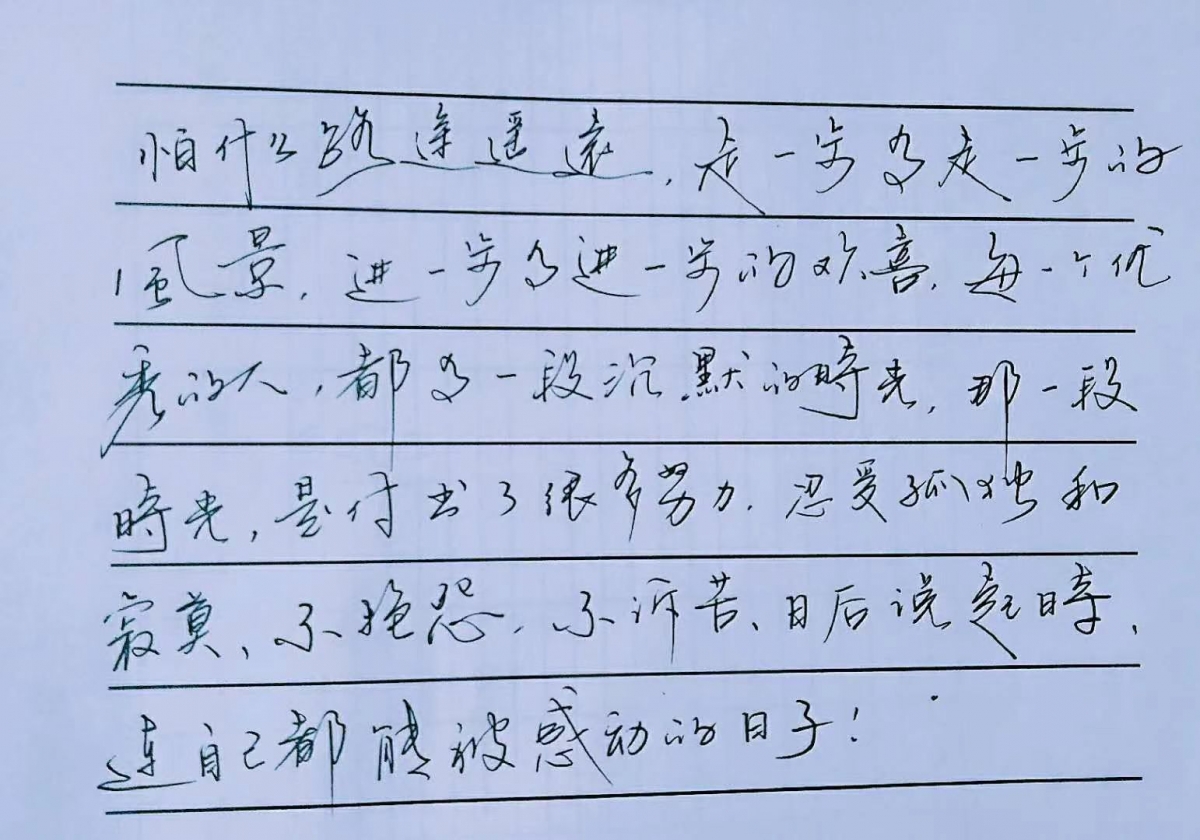 怕什么路途遥遠，走一步有走一步的
風景，进一步有进一步的欢喜，每一个优
秀的人，都有一段沉默的時光，那一段
時光，是付出了很多努力，忍受孤独和
寂莫、不抱怨，不诉苦、日后说起時，
连自己都能被感动的日子！